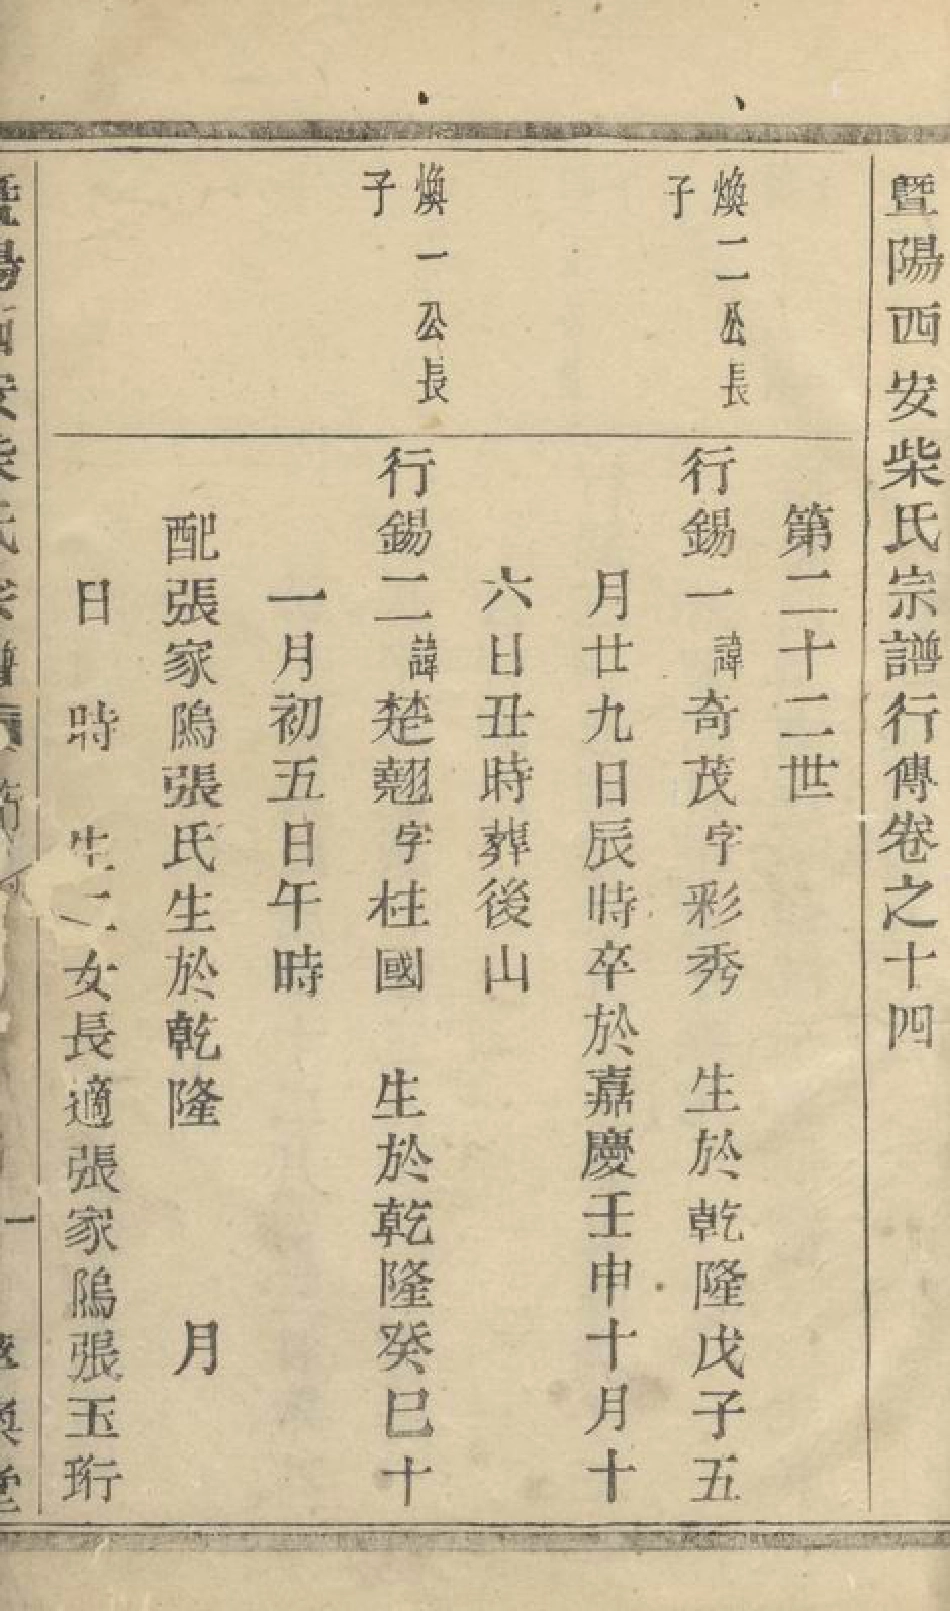 暨陽西安柴氏宗譜行傳卷之十四
第二十二世
煥二公長
子
行錫一諱奇茂字彩秀　生於乾隆戊子五
月廿九日辰時卒於嘉慶壬申十月十
六日丑時葬後山
煥一公長
子
行錫二諱楚翹字柱國　生於乾隆癸巳十
一月初五日午時
配張家隖張氏生於乾隆　月
日　時　生二女長適張家隖張玉珩
暨陽西安柴氏宗譜　一